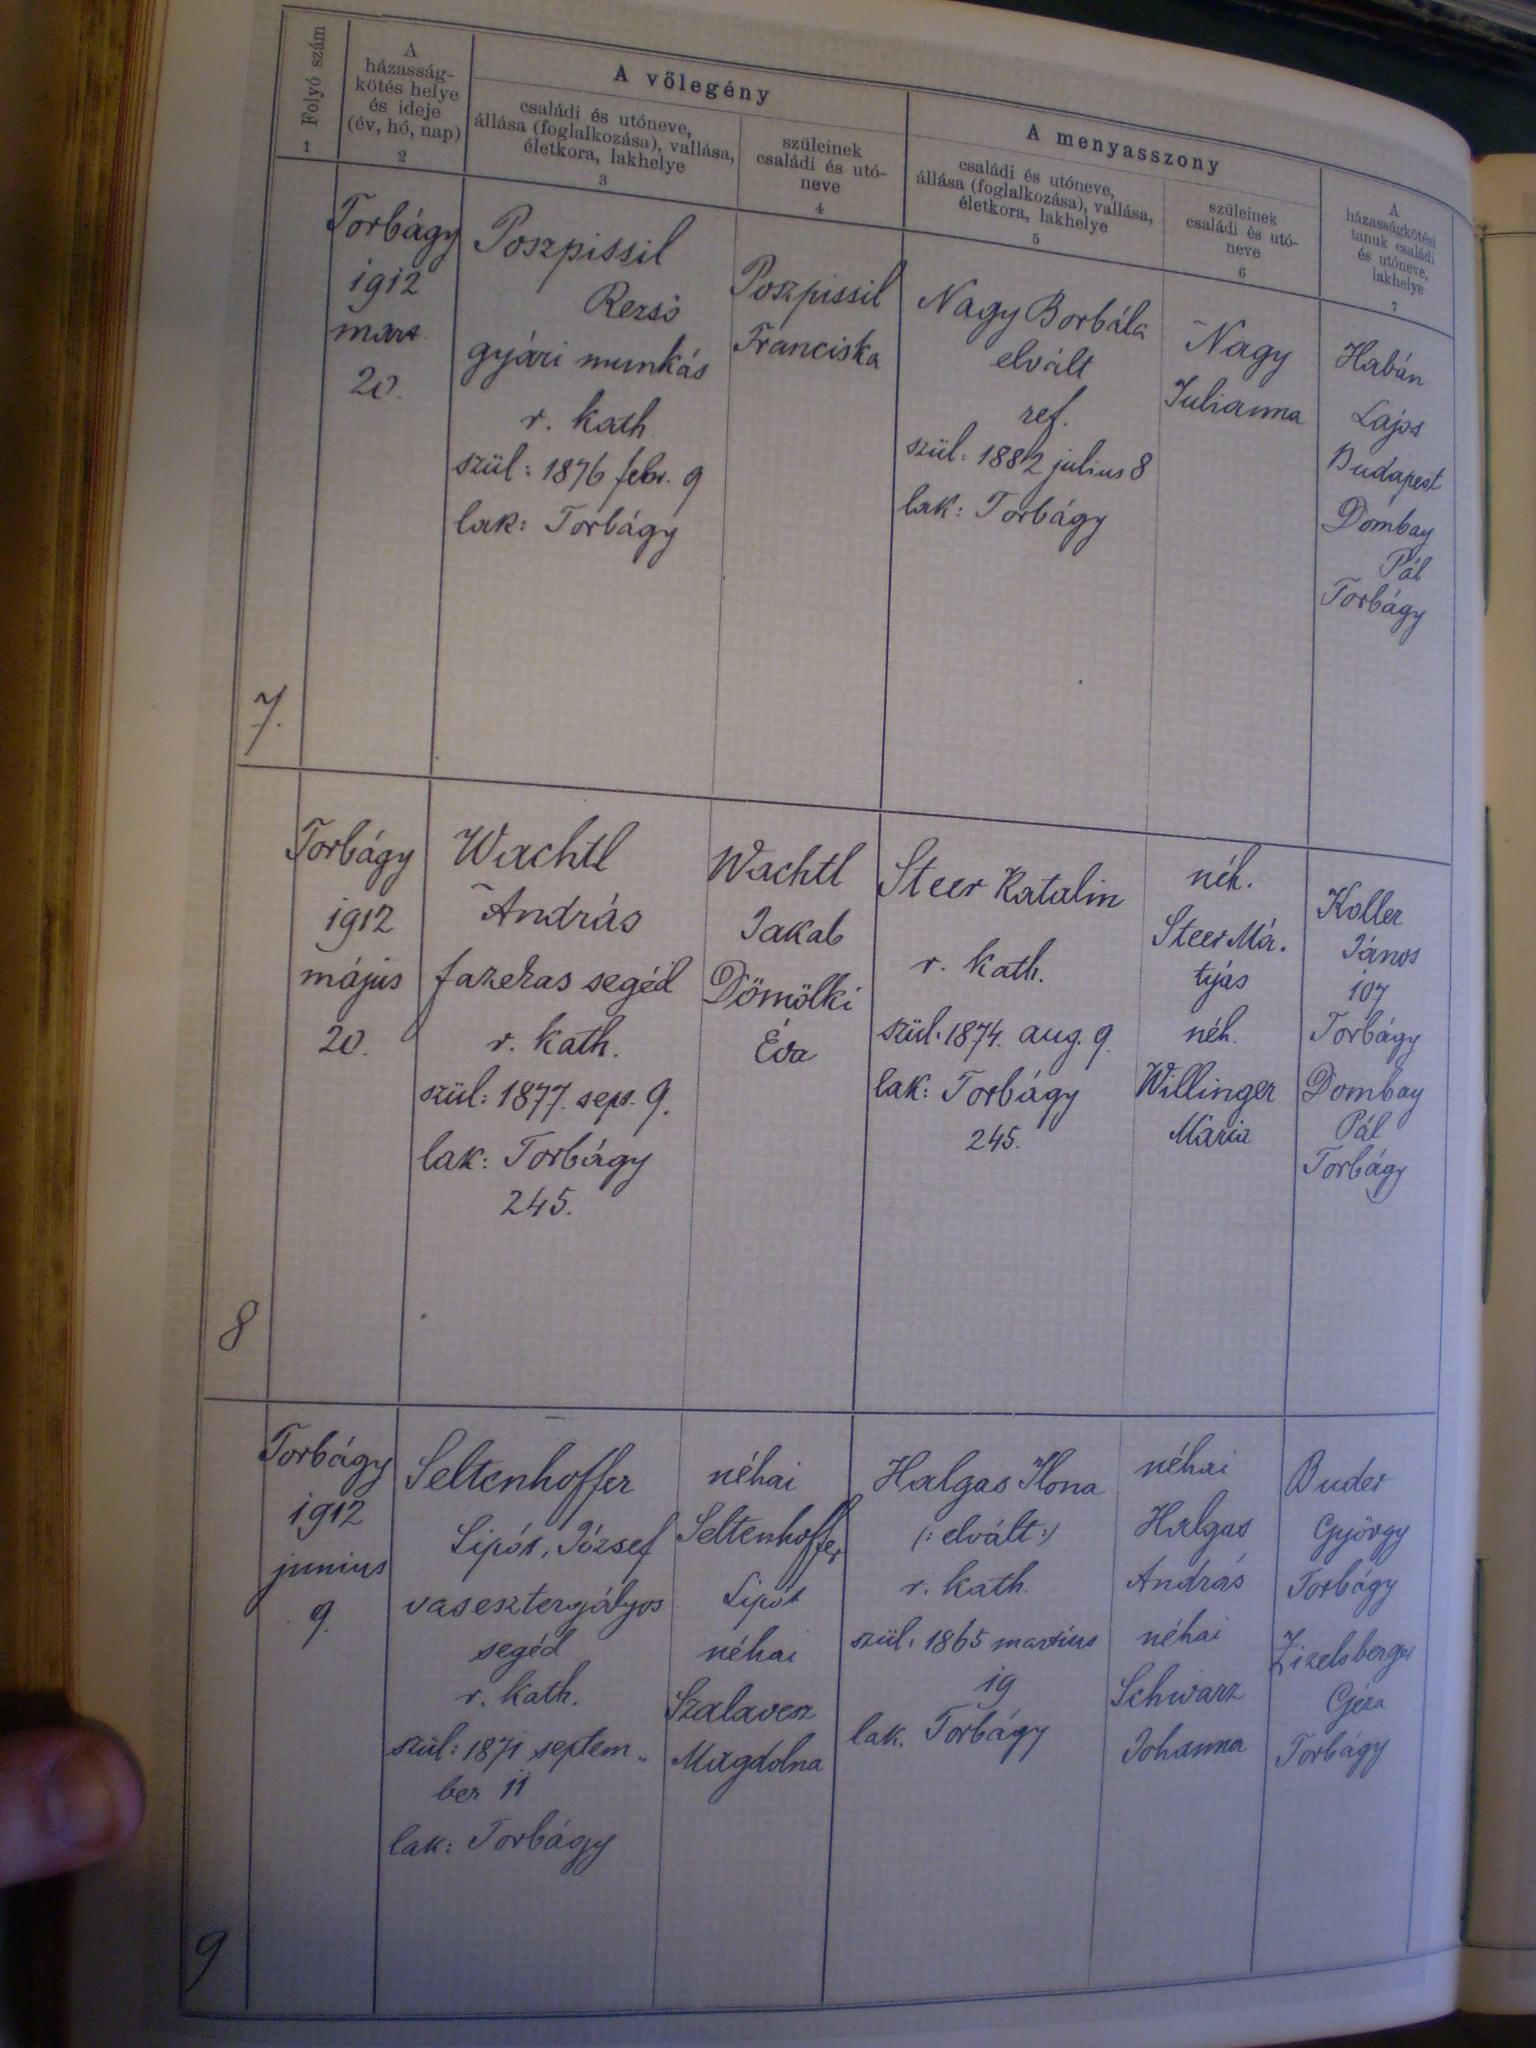 Folyó szám
1
A
házasság-
kötés helye
és ideje
(év, hó, nap)
2
A vőlegény
családi és utóneve,
állása (foglalkozása), vallása,
életkora, lakhelye
3
szüleinek
családi és utó-
neve
4
A menyasszony
családi és utóneve,
állása (foglalkozása), vallása,
életkora, lakhelye
5
szüleinek
családi és utó-
neve
6
A
házasságkötési
tanuk családi
és utóneve,
lakhelye
7
7.
Torbágy
1912
mart.
20.
Poszpissil
Rezső
gyári munkás
r. kath.
szül: 1876 febr. 9
lak: Torbágy
Poszpissil
Franciska
Nagy Borbála
elvált
ref.
szül: 1882 julius 8
lak: Torbágy
Nagy
Julianna
Habán
Lajos
Budapest
Dombay
Pál
Torbágy
8
Torbágy
1912
május
20.
Wachtl
András
fazekas segéd
r. kath.
szül: 1877. sept. 9.
lak: Torbágy
245.
Wachtl
Jakab
Dömölki
Éva
Steer Katalin
r. kath.
szül. 1874. aug. 9.
lak: Torbágy
245.
néh.
Steer Má-
tyás
néh.
Willinger
Mária
Koller
János
107
Torbágy
Dombay
Pál
Torbágy
9
Torbágy
1912
junius
9.
Seltenhoffer
Lipót, József
vasesztergályos
segéd
r. kath.
szül: 1871 septem-
ber 11
lak: Torbágy
néhai
Seltenhoffer
Lipót
néhai
Szalavesz
Magdolna
Halgas Ilona
(: elvált :)
r. kath.
szül: 1865 martius
19
lak. Torbágy
néhai
Halgas
András
néhai
Schwarz
Johanna
Buder
György
Torbágy
Zizelsberger
Géza
Torbágy